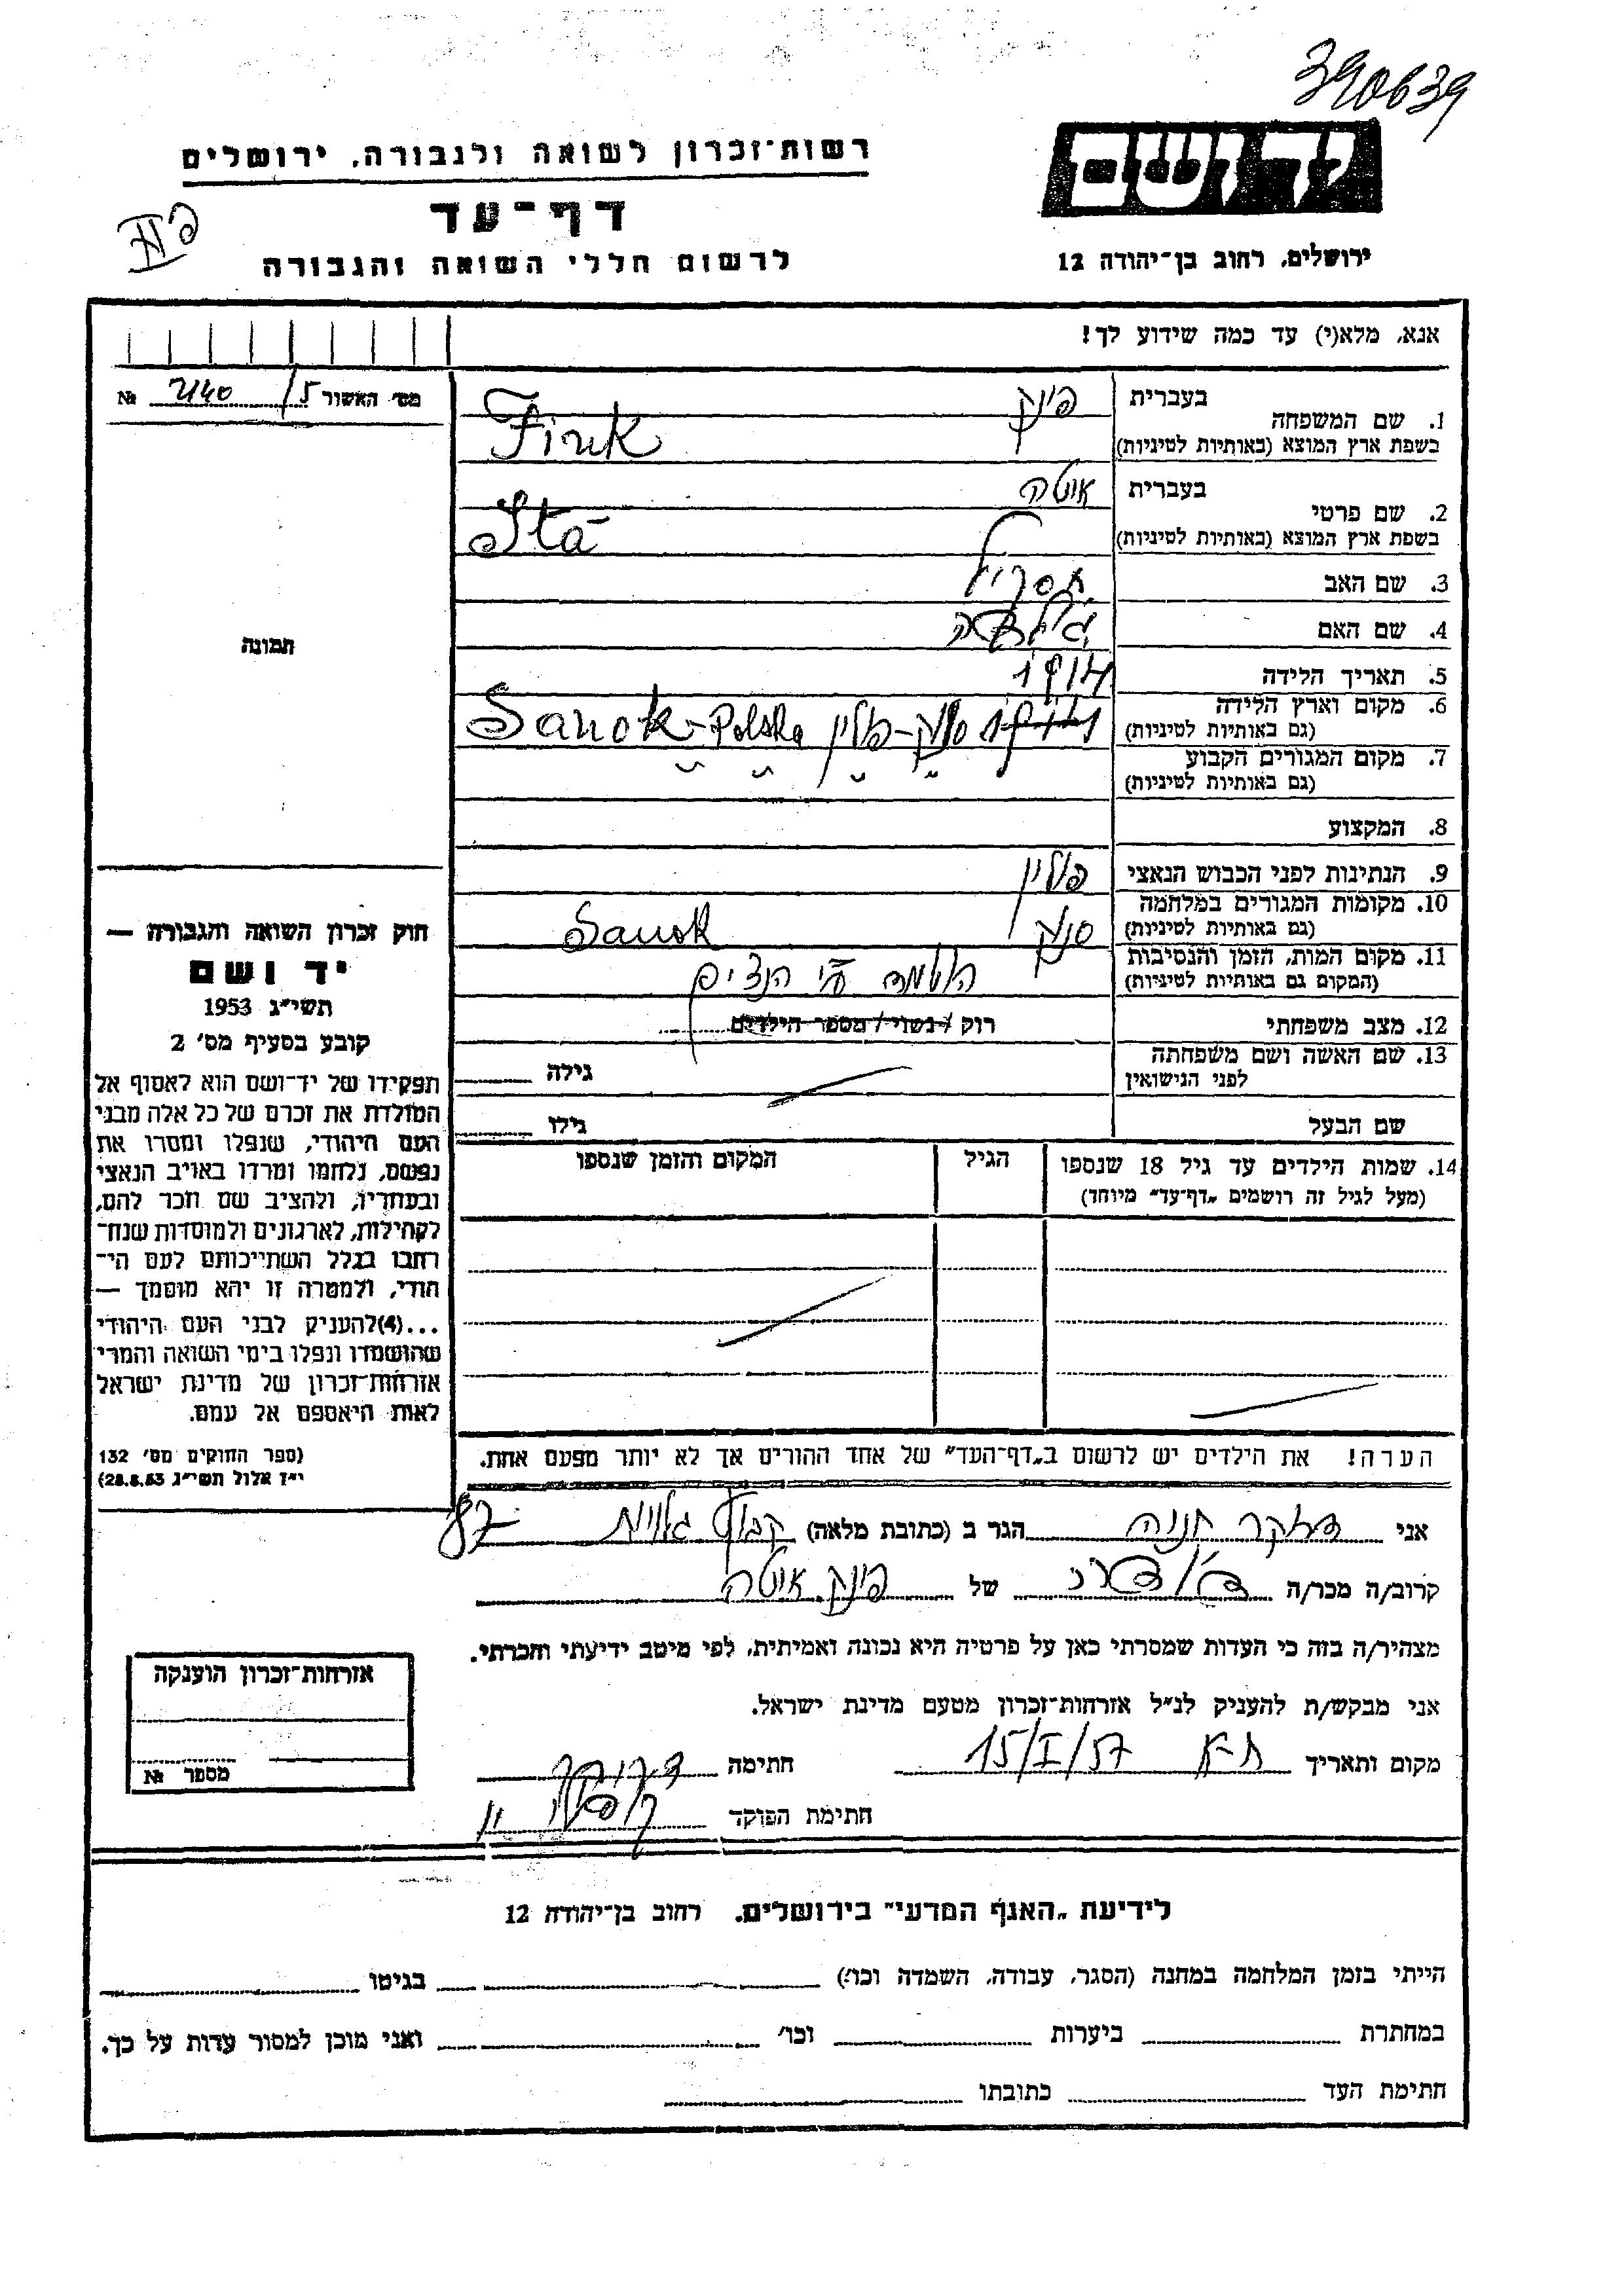 390639
יד ושם
רשות־זכרון לשואה ולגבורה, ירושלים
דף־עד
לרשום חללי השואה והגבורה
ירושלים, רחוב בן־יהודה 12
אנא, מלא(י) עד כמה שידוע לך!
מס׳ האשור 5/ 2140 №
בעברית פינק
1. שם המשפחה
בשפת ארץ המוצא (באותיות לטיניות) Fink
בעברית איטה
2. שם פרטי
בשפת ארץ המוצא (באותיות לטיניות) Ita
3. שם האב
4. שם האם
5. תאריך הלידה
6. מקום וארץ הלידה
(גם באותיות לטיניות) סנוק - פולין Sanok - Polska
7. מקום המגורים הקבוע
(גם באותיות לטיניות)
8. המקצוע
9. הנתינות לפני הכבוש הנאצי פולין
10. מקומות המגורים במלחמה
(גם באותיות לטיניות) סנוק Sanok
11. מקום המות, הזמן והנסיבות
(המקום גם באותיות לטיניות) הושמדה ע״י הנצים
12. מצב משפחתי רוק / נשוי / מספר הילדים
13. שם האשה ושם משפחתה
לפני הנישואין גילה
שם הבעל גילו
14. שמות הילדים עד גיל 18 שנספו הגיל המקום והזמן שנספו
(מעל לגיל זה רושמים „דף־עד״ מיוחד)
הערה! את הילדים יש לרשום ב„דף־העד״ של אחד ההורים אך לא יותר מפעם אחת.
תמונה
חוק זכרון השואה והגבורה —
יד ושם
תשי״ג 1953
קובע בסעיף מס׳ 2
תפקידו של יד־ושם הוא לאסוף אל
המולדת את זכרם של כל אלה מבני
העם היהודי, שנפלו ומסרו את
נפשם, נלחמו ומרדו באויב הנאצי
ובעוזריו, ולהציב שם וזכר להם,
לקהילות, לארגונים ולמוסדות שנח־
רבו בגלל השתייכותם לעם הי־
הודי, ולמטרה זו יהא מוסמך —
...(4) להעניק לבני העם היהודי
שהושמדו ונפלו בימי השואה והמרי
אזרחות־זכרון של מדינת ישראל
לאות היאספם אל עמם.
(ספר החוקים מס׳ 132
י״ז אלול תשי״ג 28.8.53)
אני חניה הגר ב (כתובת מלאה) קבוץ גלויות 87
קרוב/ה מכר/ה של פינק איטה
מצהיר/ה בזה כי העדות שמסרתי כאן על פרטיה היא נכונה ואמיתית, לפי מיטב ידיעתי והכרתי.
אני מבקש/ת להעניק לנ״ל אזרחות־זכרון מטעם מדינת ישראל.
מקום ותאריך ת-א 15/I/57 חתימה
חתימת הפוקד
אזרחות־זכרון הוענקה
מספר №
לידיעת „האגף המדעי״ בירושלים, רחוב בן־יהודה 12
הייתי בזמן המלחמה במחנה (הסגר, עבודה, השמדה וכו׳) בגיטו
במחתרת ביערות וכו׳ ואני מוכן למסור עדות על כך.
חתימת העד כתובתו